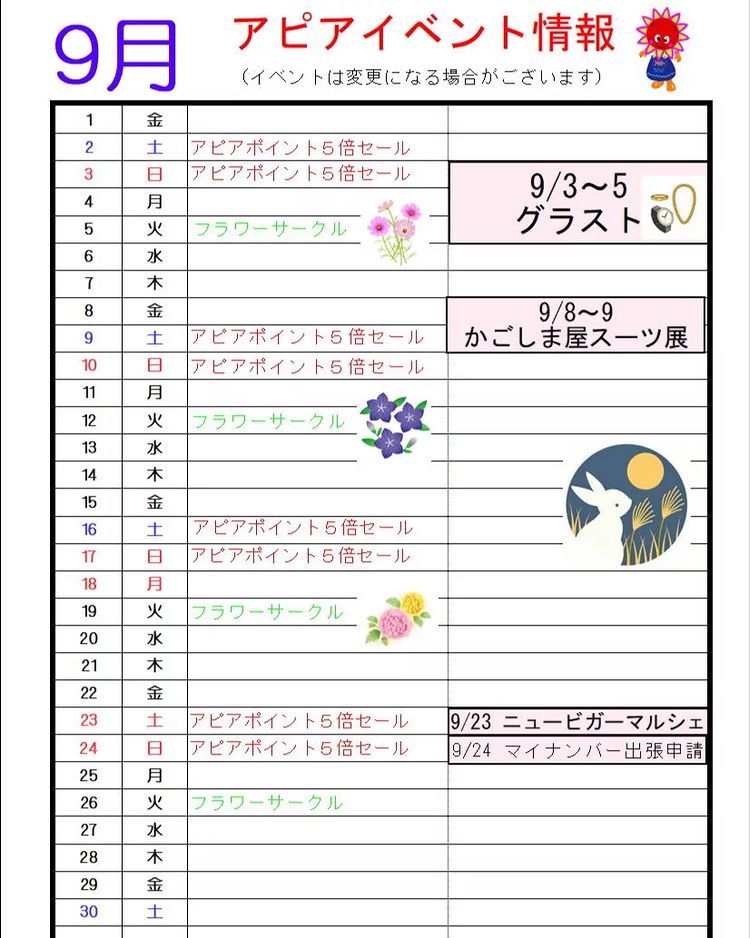 9月 アピアイベント情報
（イベントは変更になる場合がございます）
1 金
2 土 アピアポイント５倍セール
3 日 アピアポイント５倍セール
9/3～5
4 月
グラスト
5 火 フラワーサークル
6 水
7 木
8 金
9/8～9
9 土 アピアポイント５倍セール
かごしま屋スーツ展
10 日 アピアポイント５倍セール
11 月
12 火 フラワーサークル
13 水
14 木
15 金
16 土 アピアポイント５倍セール
17 日 アピアポイント５倍セール
18 月
19 火 フラワーサークル
20 水
21 木
22 金
23 土 アピアポイント５倍セール 9/23 ニュービガーマルシェ
24 日 アピアポイント５倍セール 9/24 マイナンバー出張申請
25 月
26 火 フラワーサークル
27 水
28 木
29 金
30 土